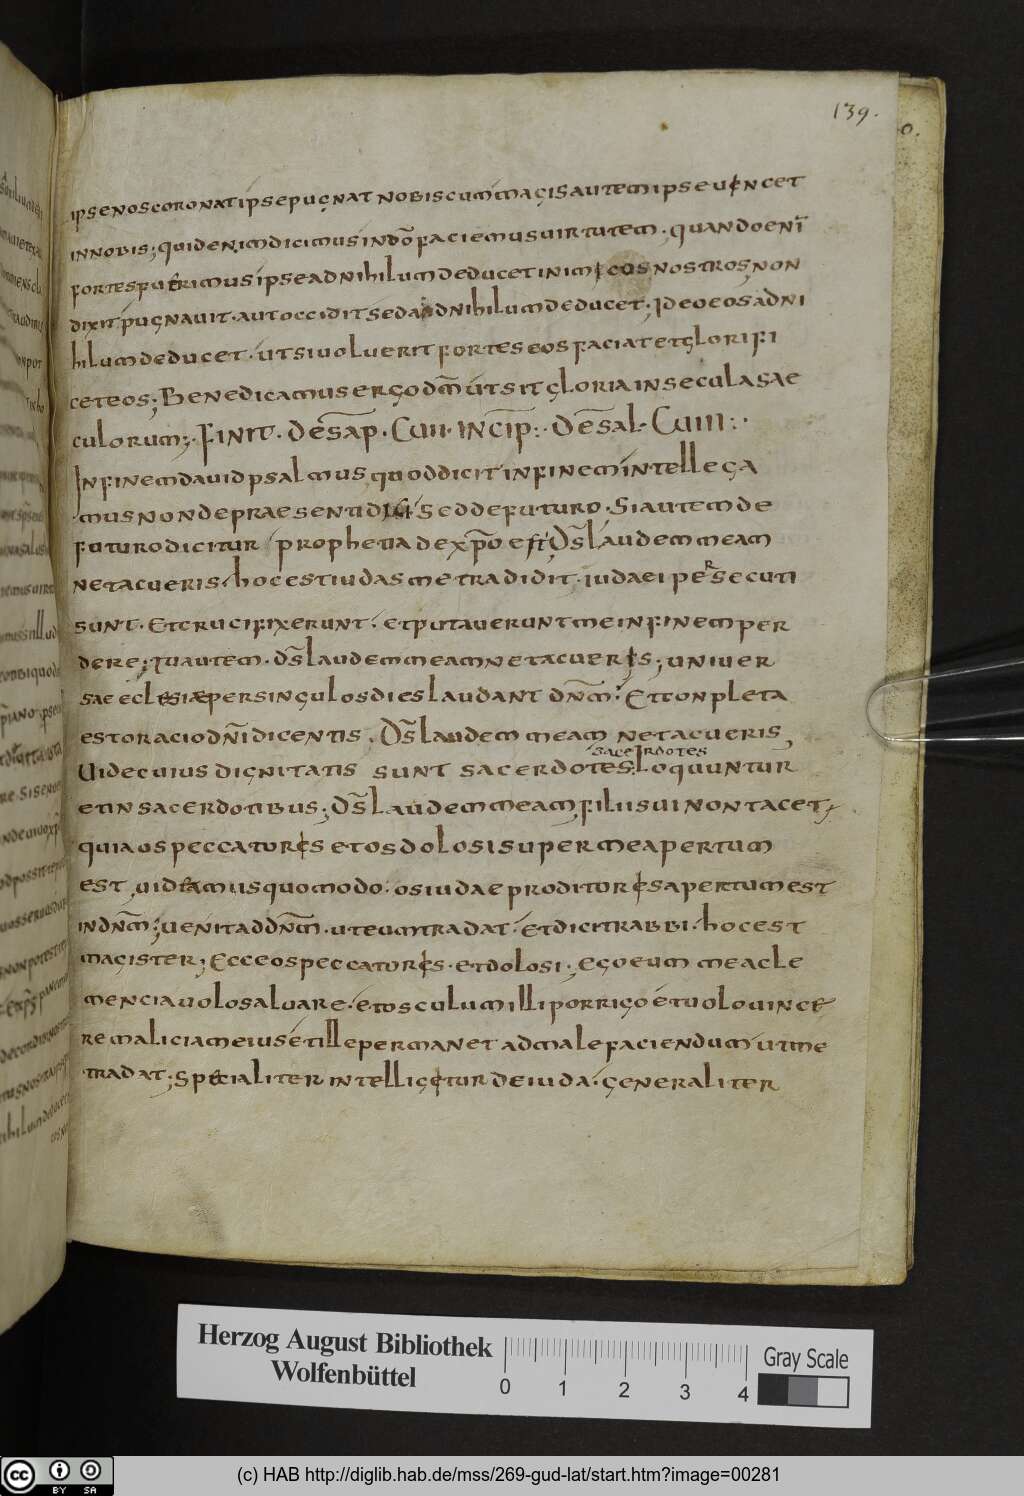 139.
0.
ipse nos coronat ipse pugnat nobiscum magis autem ipse uincet
in nobis; quid enim dicimus in dō faciemus uirtutem. quando enī
fortes fuerimus ipse ad nihilum deducet inimicos nostros non
dixit pugnauit. aut occidit sed ad nihilum deducet; Ideo eos ad ni
hilum deducet. ut si uoluerit fortes eos faciat et glorifi
cet eos; Benedicamus ergo dm̄ ut sit gloria in secula sae
culorum; FINIT. DE SĀP. CUII. INCIP̄: DE SAL̄. CUIII:.
In finem dauid psalmus quod dicit in finem intellega
mus non de praesenti dici sed de futuro. Si autem de
futuro dicitur prophetia de xp̄o est D̄s laudem meam
ne tacueris. hoc est iudas me tradidit. iudaei persecuti
sunt. Et crucifixerunt. et putauerunt me in finem per
dere; Tu autem. d̄s laudem meam ne tacueris; uniuer
sae eclesiae per singulos dies laudant dn̄m. Et conpleta
est oracio dn̄i dicentis. D̄s laudem meam ne tacueris,
sacerdotes
Uide cuius dignitatis sunt sacerdotes; Loquuntur
et in sacerdotibus; D̄s laudem meam, filii sui non tacet;
quia os peccatoris et os dolosi super me apertum
est, uideamus quomodo. os iudae proditoris apertum est
in dn̄m; uenit ad dn̄m. ut eum tradat. Et dicit rabbi. hoc est
magister; Ecce os peccatoris. et dolosi. ego eum mea cle
mencia uolo saluare. et osculum illi porrigo et uolo uince
re malicia meius et ille permanet ad male faciendum ut me
tradat; Specialiter intelligitur de iuda. generaliter
Herzog August Bibliothek
Wolfenbüttel
0 1 2 3 4
Gray Scale
cc BY SA
(c) HAB http://diglib.hab.de/mss/269-gud-lat/start.htm?image=00281